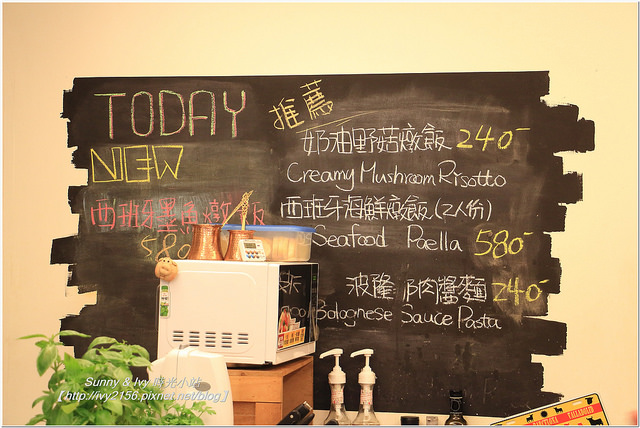 TODAY
NEW
西班牙墨魚燉飯
580
推薦
奶油野菇燉飯 240-
Creamy Mushroom Risotto
西班牙海鮮燉飯(2人份)
Seafood Paella 580-
波隆 肉醬麵 240-
Bolognese Sauce Pasta
Sunny & Ivy 時光小站
[http://ivy2156.pixnet.net/blog]